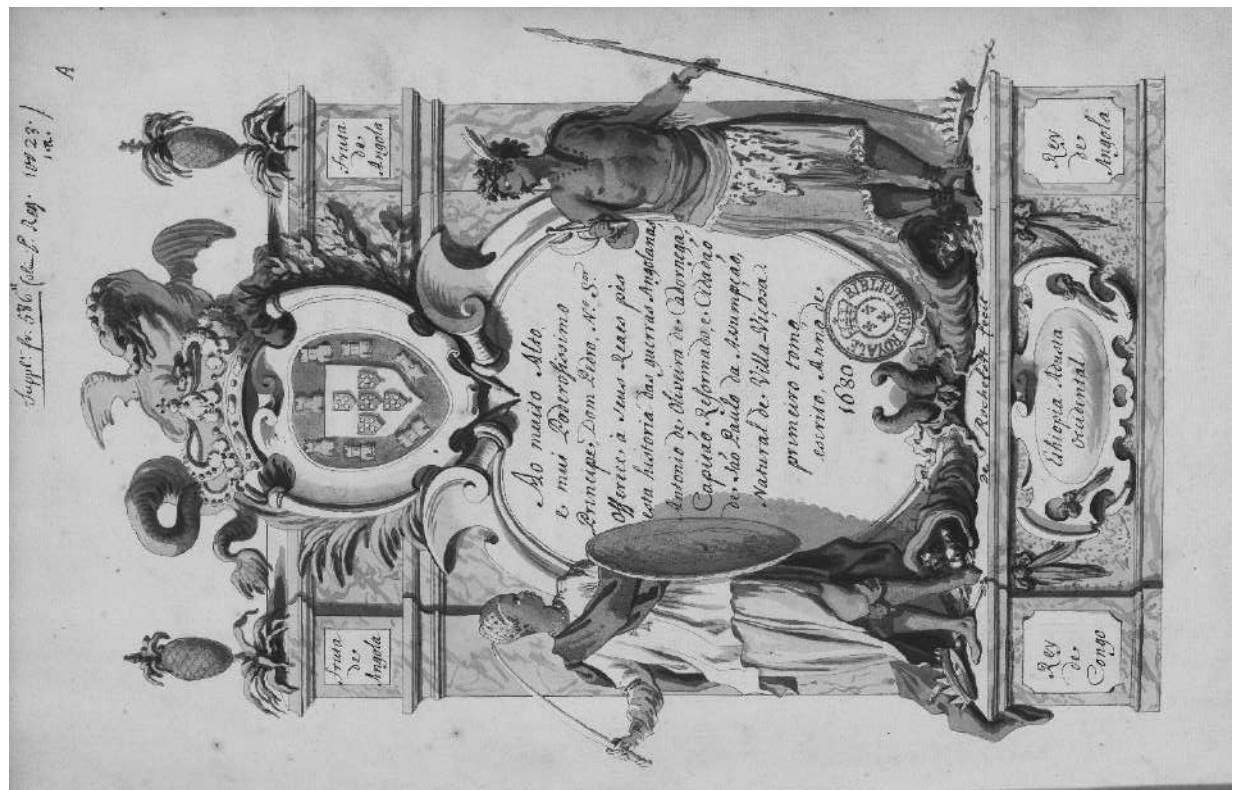 A
Fruta
de
Angola
Fruta
de
Angola
Ao muito Alto,
e mui Poderosissimo
Principe, Dom Pedro, N.º S.or
Offerece, à seus Reaes pès
esta historia das guerras Angolanas,
Antonio de Oliveira de Cadornega
Capitaõ Reformado, e Cidadaõ
de São Paulo da Assumpçaõ,
Natural de Villa-Viçosa.
primeiro tomo,
escrito, Anno, de,
1680
BIBLIOTHEQUE ROYALE
De Rochelize Fecit
Rey
de
Congo
Ethiopia Adusta
Occidental
Rey
de
Angola